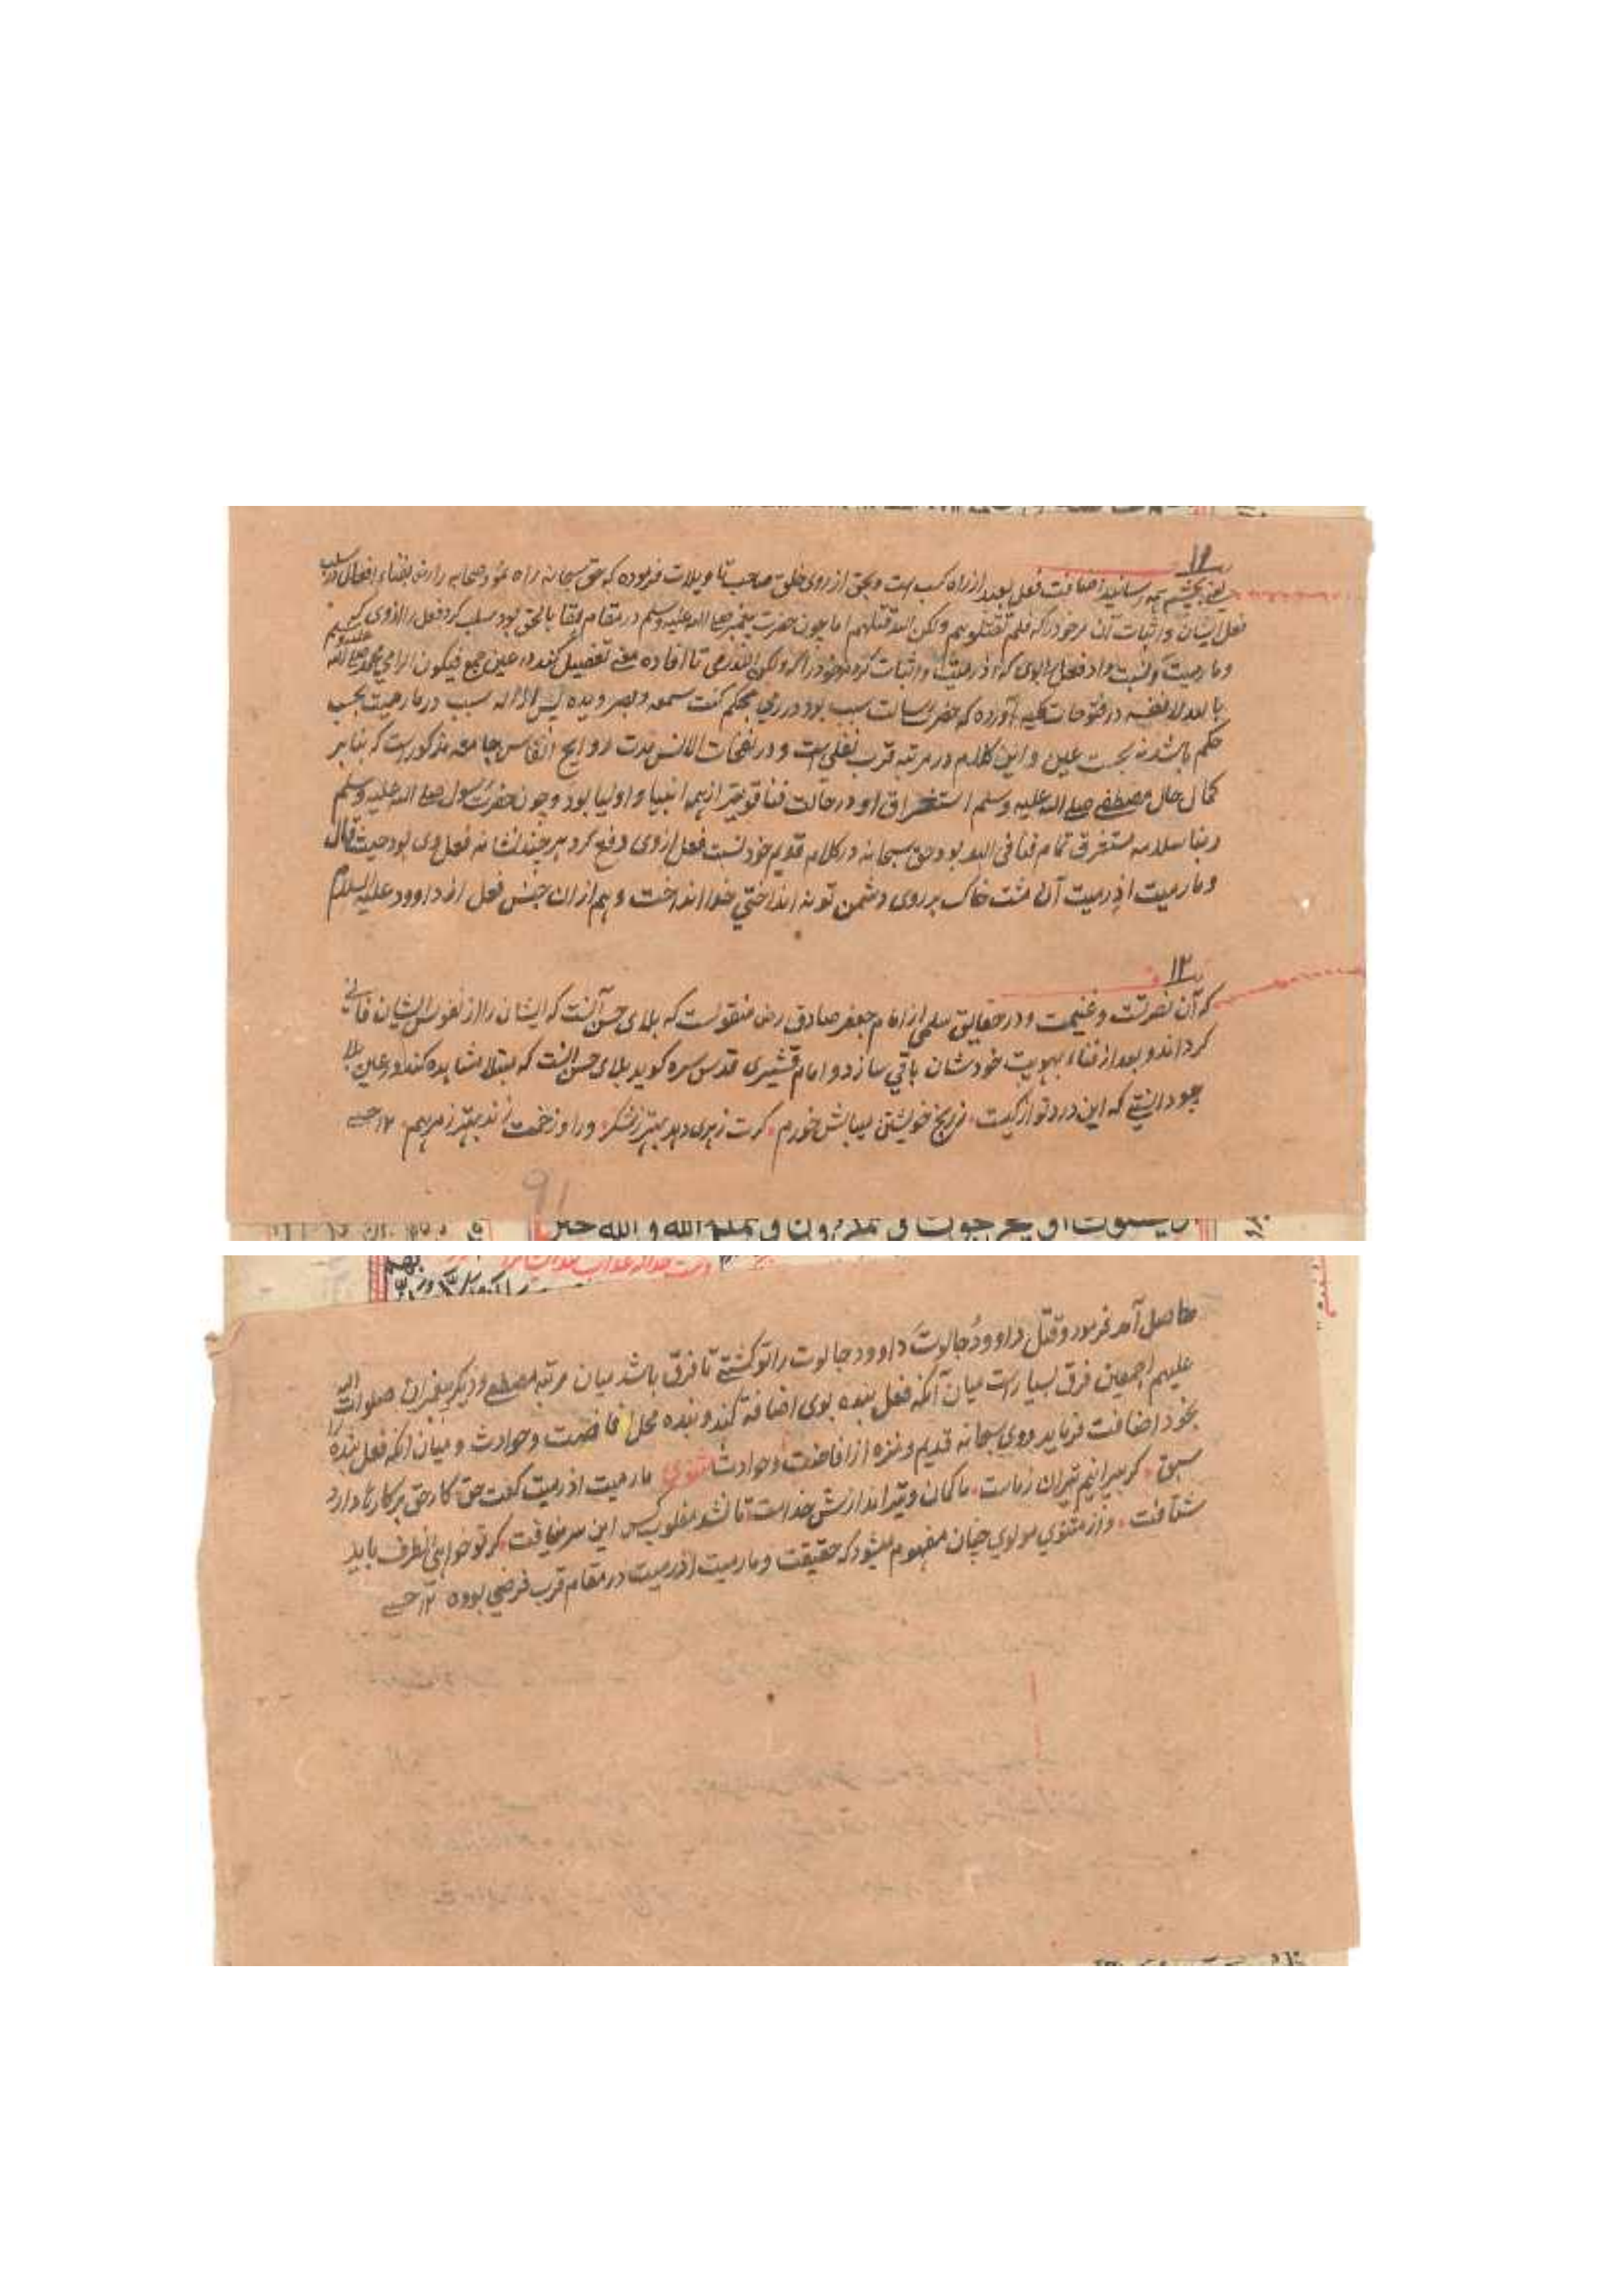 ۱۲
یعنی بچشم همه رسانید اضافت فعل بعبد از راه کسب است و بحق از روی خلق صاحب تاویلات فرموده که حق سبحانه راه نمود صحابه را رض بفناء افعال در سلب
فعل ایشان و اثبات آن مر خود را که فلم تقتلوهم ولکن الله قتلهم اما چون حضرت پیغمبر صلی الله علیه وسلم در مقام بقا بالحق بود سلب کرد فعل را از وی که
وما رمیت و نسبت داد فعل را بوی که اذ رمیت و اثبات کرد مر خود را که ولکن الله رمی تا افاده معنی تفصیل کند در عین جمع فیکون الرامی محمد صلی الله علیه وسلم
بالله لا بنفسه در فتوحات مکیه آورده که حضرت رسالت سبب بود در رمی بحکم کنت سمعه و بصره ویده پس ازاله سبب در ما رمیت بحسب
حکم باشد نه بحسب عین و این کلام در مرتبه قرب نفلی است و در نفحات الانس روایح انفاس جامعه مذکور است که بنا بر
کمال حال مصطفی صلی الله علیه وسلم استغراق او در حالت فنا قویتر از همه انبیا و اولیا بود و چون حضرت رسول صلی الله علیه وسلم
مستغرق تمام فنا فی الله بود حق سبحانه در کلام قدیم خود نسبت فعل از وی دفع کرد هر چند نشانه فعل وی بود حیث قال
وما رمیت اذ رمیت آن مشت خاک بر روی دشمن تو نه انداختی خدا انداخت و هم ازان جنس فعل از داوود علیه السلام
۱۳
که آن نصرتست و غنیمت و در حقایق سلمی از امام جعفر صادق رض منقولست که بلای حسن آنست که ایشان را از نفوس ایشان فانی
گرداند و بعد از فنا، بهویت خودشان باقی سازد و امام قشیری قدس سره گوید بلای حسن آنست که مبتلا مشاهده کند در عین بلا
چو دانستی که این درد تو از کیست * ز رنج خویشتن میباش خورم * گرت زهری دهد بهتر ز شکر * ور او زخمت زند بهتر ز مرهم * ۱۲ حسینی
۹۱
حاصل آمد فرمود وقتل داوود جالوت داوود جالوت را تو کشتی تا فرق باشد میان مرتبه مصطفی و دیگر پیغمبران صلوات الله
علیهم اجمعین فرق بسیار است میان آنکه فعل بنده بوی اضافه کند و بنده محل و حوادث و میان آنکه فعل بنده را
بخود اضافت فرماید ووی سبحانه قدیم و منزه از و حوادث مثنوی ما رمیت اذ رمیت گفت حق کار حق بر کارها دارد
سبق * گر بپرانیم تیر آن نی ز ماست * ما کمان و تیر اندازش خداست * تا نشد مغلوب کس این سر نیافت * گر تو خواهی آن طرف باید
شتافت * و از مثنوی مولوی چنان مفهوم میشود که حقیقت وما رمیت اذ رمیت در مقام قرب فرضی بوده ۱۲ حسینی